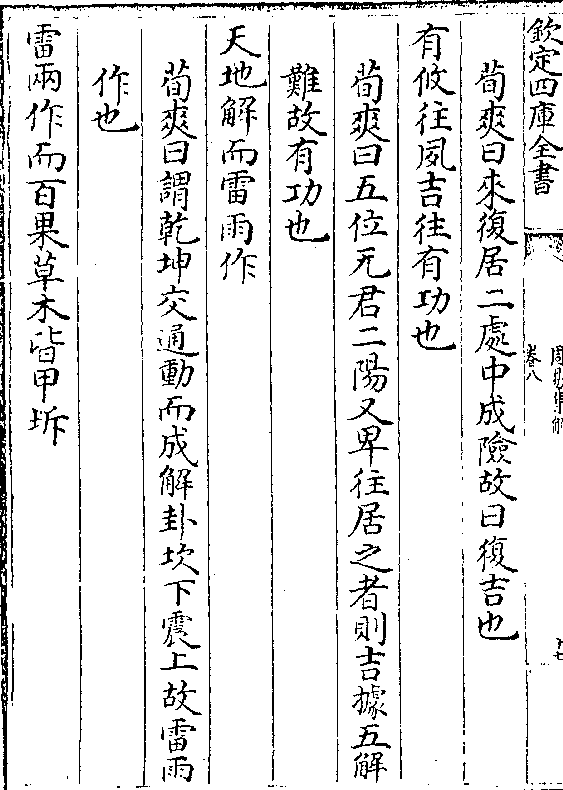 欽定四庫全書
周易集解
卷八
十七
荀爽曰來復居二處中成險故曰復吉也
有攸往夙吉往有功也
荀爽曰五位无君二陽又卑往居之者則吉據五解
難故有功也
天地解而雷雨作
荀爽曰謂乾坤交通動而成解卦坎下震上故雷雨
作也
雷雨作而百果草木皆甲坼